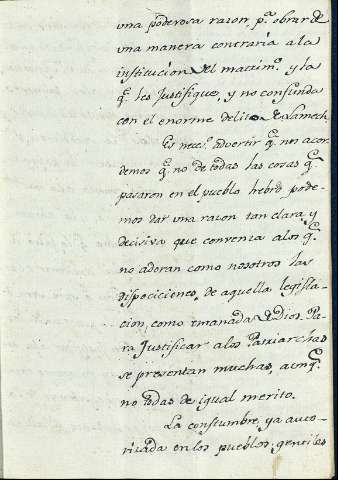 una poderosa razon, p.ª obrar de
una manera contraria a la
institucion del matrim.º y la
q.e les Justifique, y no confunda
con el enorme delito de Lamech.
Es neces.º advertir q.e nos acor-
demos q.e no de todas las cosas q.e
pasaron en el pueblo hebrêo pode-
mos dar una razon tan clara, y
decisiva que convenza alos q.e
no adoran como nosotros las
dispociciones, de aquella legisla-
cion, como emanada de Dios. Pa-
ra Justificar alos Patriarchas
se presentan muchas, aunq.e
no todas de igual merito.
La constumbre, ya auto-
rizada en los pueblos gentiles